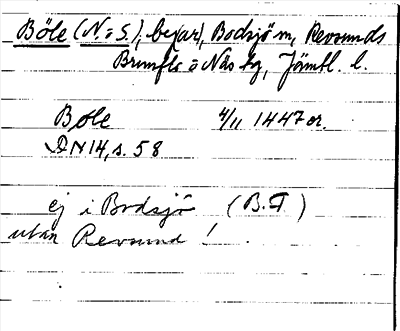 Böle (N. o S.), byar, Bodsjö sn, Revsunds
Brunflo o Näs tg, Jämtl. l.
Böle 4/11 1447 or.
DN 14, s. 58
ej i Bodsjö (B.F)
utan Revsund !